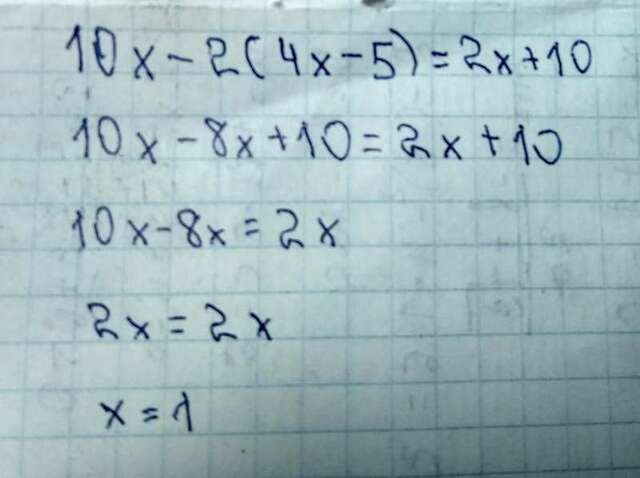 10x-2(4x-5)=2x+10
10x-8x+10=2x+10
10x-8x=2x
2x=2x
x=1